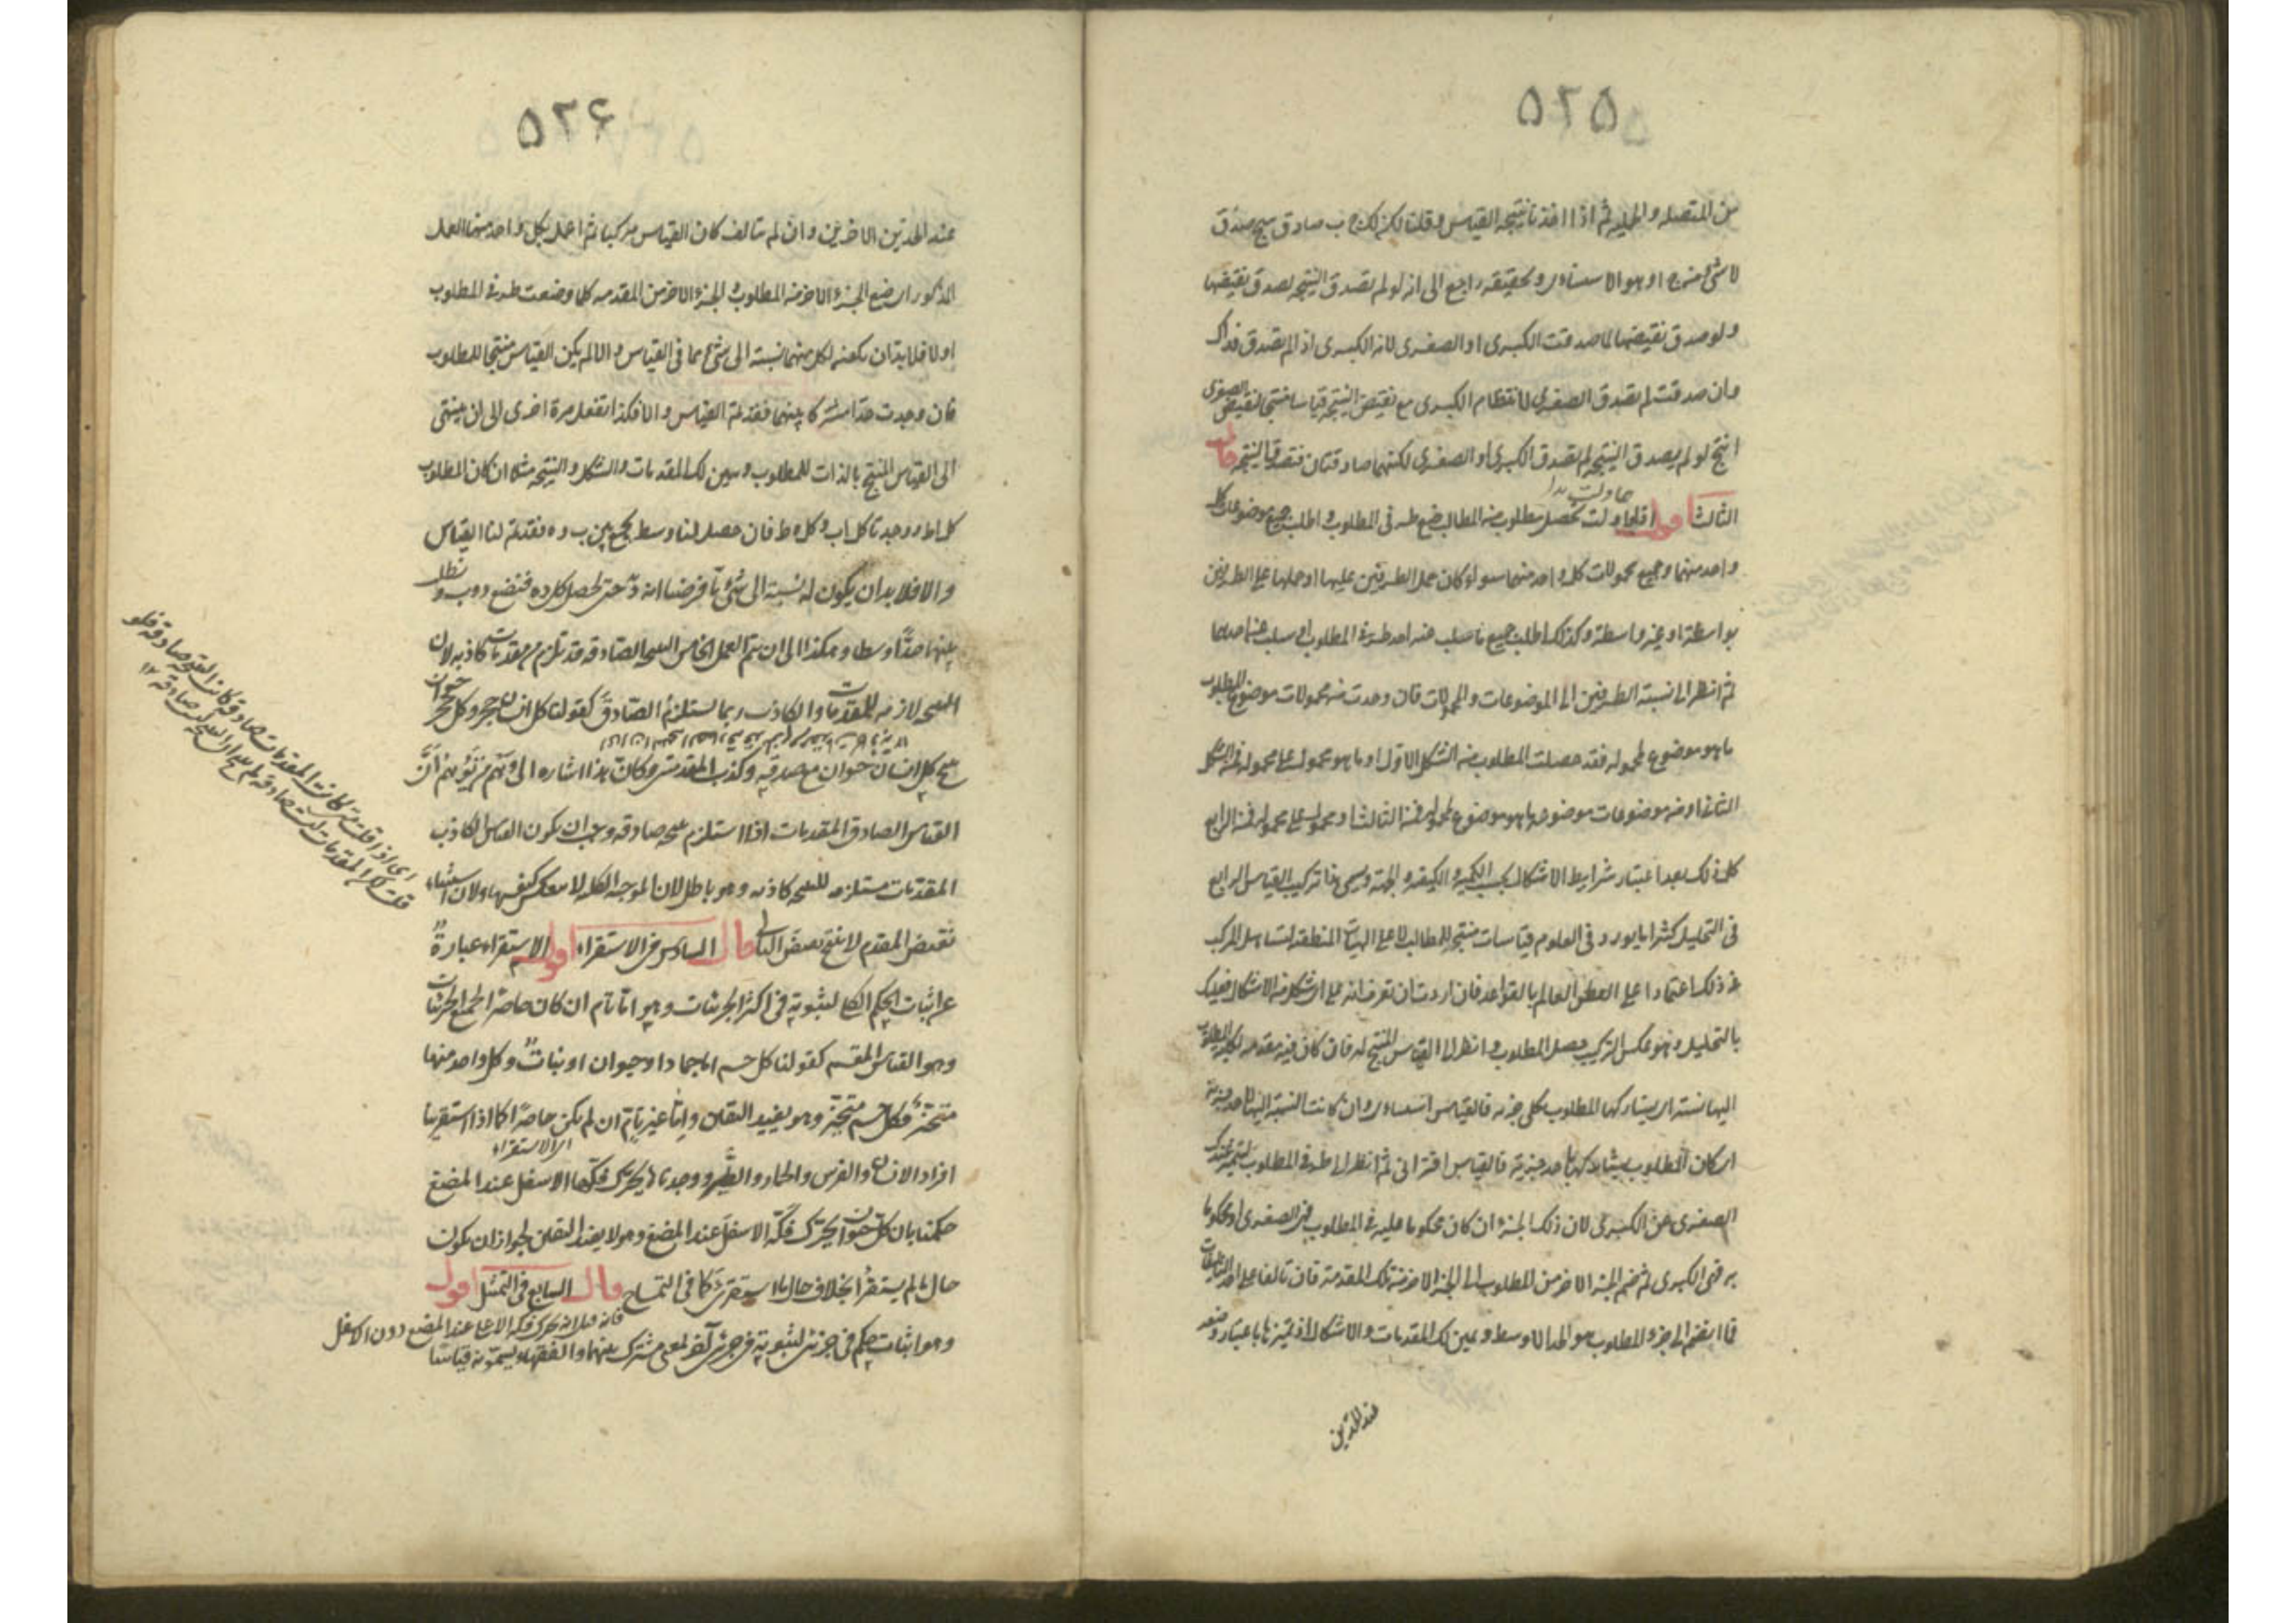 ٥٢٥
من المتصله والحمليه ثم اذا اخذنا نتيجه القياس وقلنا لكن كل ج ب صادق ينتج صدق
لا شئ من ج ا وهو الاستثنائى وتحقيقه راجع الى انه لو لم تصدق النتيجه لصدق نقيضها
ولو صدق نقيضها لما صدقت الكبرى او الصغرى لانه الكبرى اذا لم تصدق فذاك
وان صدقت لم تصدق الصغرى لانتظام الكبرى مع نقيض النتيجه قياسا منتجا لنقيض الصغرى
انتج لو لم يصدق النتيجه لم تصدق الكبرى او الصغرى لكنهما صادقتان فتصدق النتيجه قال
الثالث اقول اذا حاولت تحصيل مطلوب من المطالب ضع طرفى المطلوب واطلب جميع موضوعات كل
واحد منهما وجميع محمولات كل واحد منهما سواء كان حمل الطرفين عليها او حملها على الطرفين
بواسطة او غير واسطة وكذلك اطلب جميع ما سلب عنه احد طرفى المطلوب او سلب عن احدهما
ثم انظر الى نسبة الطرفين الى الموضوعات والمحمولات فان وجدت من محمولات موضوع المطلوب
ما هو موضوع لمحموله فقد حصلت المطلوب من الشكل الاول او ما هو محمول على محموله فمن الشكل
الثانى او من موضوعات موضوعه ما هو موضوع لمحموله فمن الثالث او محمول على محموله فمن الرابع
كل ذلك بعد اعتبار شرايط الاشكال بحسب الكميه والكيفيه والجهة ويسمى هذا تركيب القياس الرابع
فى التحليل كثيرا ما يورد فى العلوم قياسات منتجه للمطالب لا على الهيات المنطقيه لتساهل المركب
فى ذلك اعتمادا على الفطن العالم بالقواعد فان اردت ان تعرف انه على اى شكل من الاشكال فعليك
بالتحليل وهو عكس التركيب حصل المطلوب وانظر الى القياس المنتج له فان كان فيه مقدمه
اليها نسبة اى يشاركها المطلوب بكلى جزئيه فالقياس استثنائى وان كانت النسبة اليها لاحد جزئيه
اى كان المطلوب يشاركها باحد جزئيه فالقياس اقترانى ثم انظر الى طرفى المطلوب لتتميز عندك
الصغرى عن الكبرى لان ذلك الجزء ان كان محكوما عليه فى المطلوب فهى الصغرى او محكوما
به فهى الكبرى ثم ضم الجزء الاخر من المطلوب الى الجزء الاخر من تلك المقدمة فان تالفا على احد التاليفات
فما انضم الى جزء المطلوب هو الحد الاوسط وتعين لك المقدمات والاشكال اذ تميزها باعتبار وضعه
عند الحدين
٥٢۶
عند الحدين الاخرين وان لم يتالف كان القياس مركبا ثم اعمل بكل واحد منهما العمل
المذكور اى ضع الجزء الاخر من المطلوب والجزء الاخر من المقدمه كما وضعت طرفى المطلوب
اولا فلا بد ان يكون لكل منهما نسبة الى شئ مما فى القياس والا لم يكن القياس منتجا للمطلوب
فان وجدت حدا مشتركا بينهما فقد تم القياس والا فكذا تفعل مرة اخرى الى ان ينتهى
الى القياس المنتج بالذات للمطلوب وتبين لك المقدمات والشكل والنتيجه مثلا ان كان المطلوب
كل ا ط ووجدنا كل ا ب وكل ه ط فان حصل لنا وسط يجمع بين ب و ه فقد تم لنا القياس
والا فلا بد ان يكون له نسبة الى شئ ما فرضنا انه د حتى يحصل كل د ه فنضع د و ب ونطلب
بينهما حدا وسطا وهكذا الى ان يتم العمل الخامس النتيجه الصادقه قد تلزم من مقدمات كاذبه لان
النتيجه لازمه للمقدمات والكاذب ربما يستلزم الصادق كقولنا كل انسان حجر وكل حجر حيوان
ينتج كل انسان حيوان مع صدقه وكذب المقدمتين وكان هذا اشاره الى وهم من توهم ان
القياس الصادق المقدمات اذا استلزم نتيجه صادقه وجب ان يكون القياس الكاذب
المقدمات مستلزمه للنتيجه كاذبه وهو باطل لان الموجبه الكليه لا تنعكس كنفسها ولان استثناء
نقيض المقدم لا ينتج نقيض التالى قال السادس فى الاستقراء اقول الاستقراء عبارة
عن اثبات الحكم الكلى لثبوته فى اكثر الجزئيات وهو اما تام ان كان حاصرا لجميع الجزئيات
وهو القياس المقسم كقولنا كل جسم اما جماد او حيوان او نبات وكل واحد منها
متحيز فكل جسم متحيز وهو يفيد اليقين واما غير تام ان لم يكن حاصرا كما اذا استقرينا
اى الاستقراء
افراد الانسان والفرس والحمار والطير ووجدناها يحرك فكها الاسفل عند المضغ
حكمنا بان كل حيوان يحرك فكه الاسفل عند المضغ وهو لا يفيد اليقين لجواز ان يكون
حال ما لم يستقرأ بخلاف حال ما استقرئ كما فى التمساح قال السابع فى التمثيل اقول
فانه قيل انه يحرك فكه الاعلى عند المضغ دون الاسفل
وهو اثبات حكم فى جزئى لثبوته فى جزئى آخر لمعنى مشترك بينهما والفقهاء يسمونه قياسا